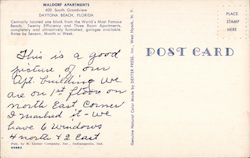 WALDORF APARTMENTS
400 South Grandview
DAYTONA BEACH, FLORIDA
Centrally located one block from the World's Most Famous
Beach. Twenty Efficiency and Three Room Apartments,
completely and attractively furnished, garages available.
Rates by Season, Month or Week.
This is a good
picture of our
Apt. building. We
are on 1st floor on
north East Corner
I marked it - we
have 6 windows
4 north & 2 East
Genuine Natural Color Made By DEXTER PRESS, Inc., West Nyack, N. Y.
POST CARD
PLACE
STAMP
HERE